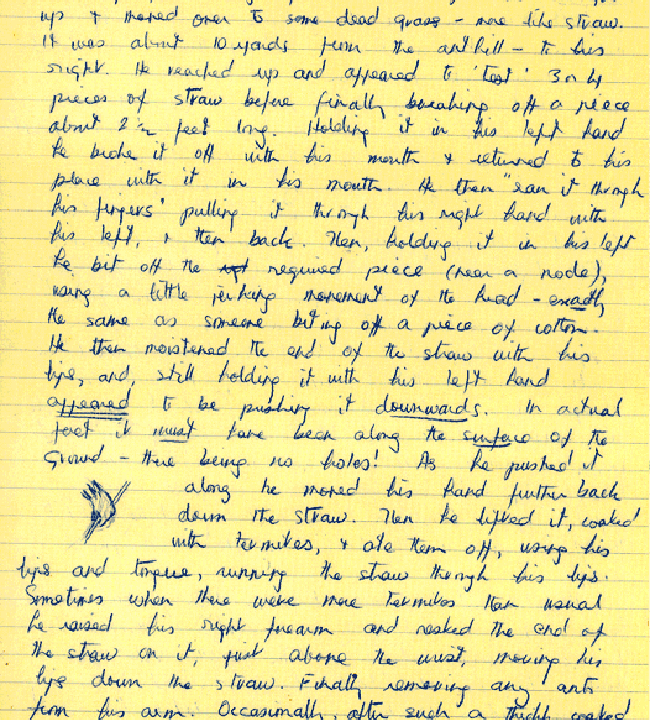 up & moved over to some dead grass - more like straw.
It was about 10 yards from the ant hill - to his
right. He reached up and appeared to 'test' 3 or 4
pieces of straw before finally breaking off a piece
about 2 ½ feet long. Holding it in his left hand
he broke it off with his mouth & returned to his
place with it in his mouth. He then "ran it through
his fingers' pulling it through his right hand with
his left, & then back. Then, holding it in his left
he bit off the required piece (near a node),
using a little jerking movement of the head - exactly
the same as someone biting off a piece of cotton.
He then moistened the end of the straw with his
lips, and, still holding it with his left hand
appeared to be pushing it downwards. In actual
fact it must have been along the surface of the
Ground - there being no holes! As he pushed it
along he moved his hand further back
down the straw. Then he lifted it, coated
with termites, & ate them off, using his
lips and tongue, running the straw through his lips.
Sometimes when there were more termites than usual
he raised his right forearm and rested the end of
the straw on it, just above the wrist, moving his
lips down the straw. Finally removing any ants
from his arm. Occasionally, after such a thickly coated